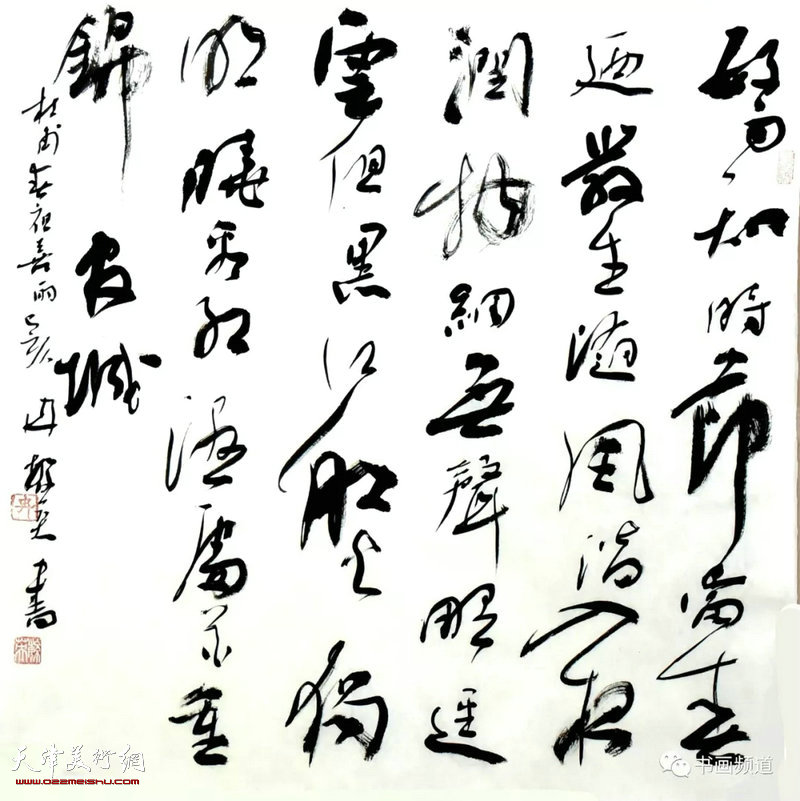 好雨知時節當春
迺發生隨風潛入夜
潤物細無聲野逕
雲俱黑江船火獨
明曉看紅濕處花重
錦官城
杜甫春夜喜雨己亥冉繁英書
天津美術網
www.022meishu.com
书画频道